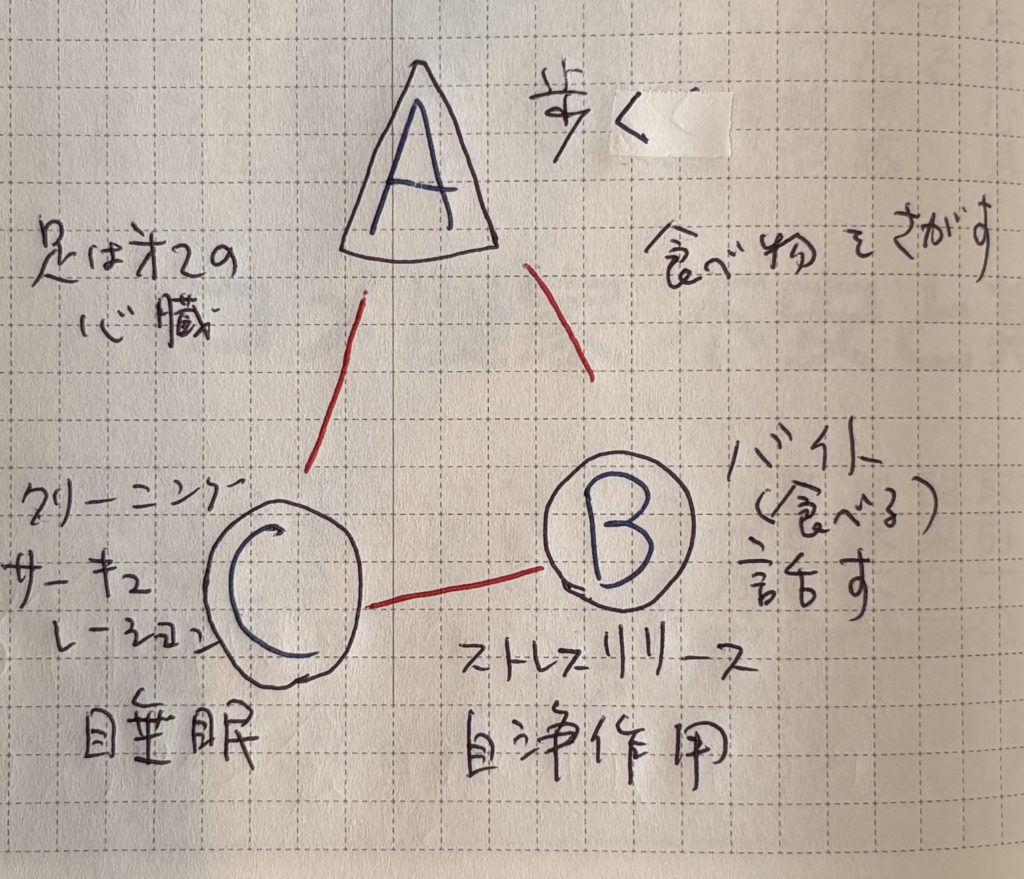 A
歩く
足は才2の
心臓
食べ物をさがす
B
バイト
(食べる)
話す
C
クリーニング
サーキュ
レーション
ストレスリリース
睡眠
自浄作用